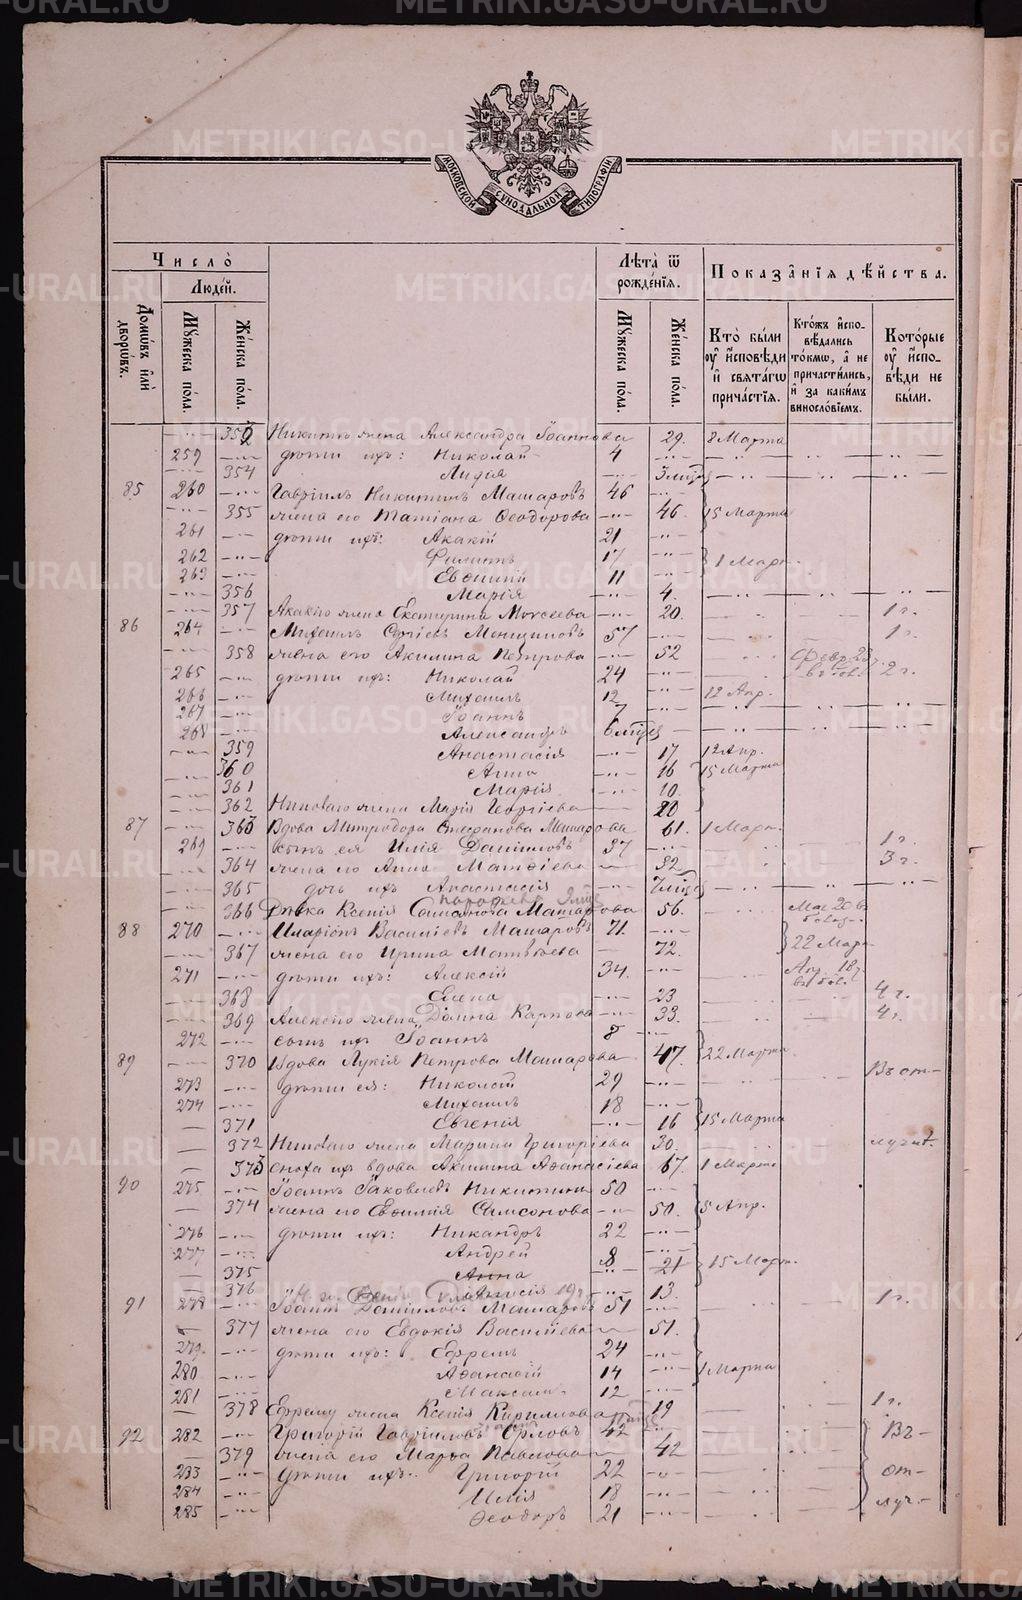 МОСКОВСКОЙ СУНОДАЛЬНОЙ ТИПОГРАФІИ
Число̀
Домѡвъ и҆лѝ дворѡвъ.
Людей.
Мꙋжеска пола.
Женска пола.
Лѣта ѿ рожденїѧ.
Мꙋжеска пола.
Женска пола.
Показанїѧ дѣйства.
Кто̀ были ᲂу҆ и҆сповѣди и҆ свѧтагѡ причастїѧ.
Ктожъ и҆сповѣдались токмѡ, а҆ не причастились, и҆ за какимъ винословїемъ.
Которые ᲂу҆ и҆сповѣди не были.
353 Никиты жена Александра Іоаннова 29. 8 Марта
259 дѣти ихъ: Николай 4
354 Лидія 3
85 260 Гавріилъ Никитинъ Машаровъ 46
355 жена его Татіана Ѳеодорова 46. 15 Марта
261 дѣти ихъ: Акакій 21
262 Филиппъ 17 1 Март.
263 Евѳимій 11
356 Марія 4.
357 Акакіго жена Екатерина Моѵсеева 20. 1 г.
86 264 Михаилъ Сергіевъ Меншиковъ 57 1 г.
358 жена его Акилина Петрова 52 Февр. 23
265 дѣти ихъ: Николай 24 2 г.
266 Михаилъ 12 12 Апр.
267 Іоаннъ 7
268 Александръ 6
359 Анастасія 17 12 Апр.
360 Анна 16 15 Марта
361 Марія 10.
362 Николаго жена Марія Георгіева 20
87 363 Вдова Митродора Стефанова Машарова 61. 1 Март.
269 сынъ ея Илія Даніиловъ 37 1 г.
364 жена его Анна Матѳіева 32 3 г.
365 дочь ихъ Анастасія 7
366 Дѣвка Ксенія Самсонова Машарова 56. Мая 20
88 270 Иларіонъ Василіевъ Машаровъ 71.
367 жена его Ирина Матвѣева 72. 22 Мар.
271 дѣти ихъ: Алексій 34. Апр. 18
368 Елена 23 4 г.
369 Алексіго жена Домна Карпова 33. 4 г.
272 сынъ ихъ Іоаннъ 8
89 370 Вдова Лукія Петрова Машарова 47. 22 Марта
273 дѣти ея: Николай 29 Въ от-
274 Михаилъ 18
371 Евгенія 16 15 Марта
372 Николаго жена Марина Григоріева 30. лучкѣ.
373 сноха ихъ вдова Акилина Аѳанасіева 67. 1 Марта
90 275 Іоаннъ Іаковлевъ Никитинъ 50
374 жена его Евѳимія Самсонова 50. 5 Апр.
276 дѣти ихъ: Никандръ 22
277 Андрей 8
375 Анна 21 15 Март.
376 13.
91 278 Іоаннъ Даніиловъ Машаровъ 51 1 г.
377 жена его Евдокія Василіева 51.
279. дѣти ихъ: Ефремъ 24
280 Аѳанасій 14 1 Марта
281 Максимъ 12
378 Ефрему жена Ксенія Кириллова 19 1 г.
92 282 Григорій Гавріиловъ Орловъ 42 Въ-
379 жена его Марѳа Павлова 42
283 дѣти ихъ: Григорій 22 от-
284 Илія 18
285 Ѳеодоръ 21 луч.-